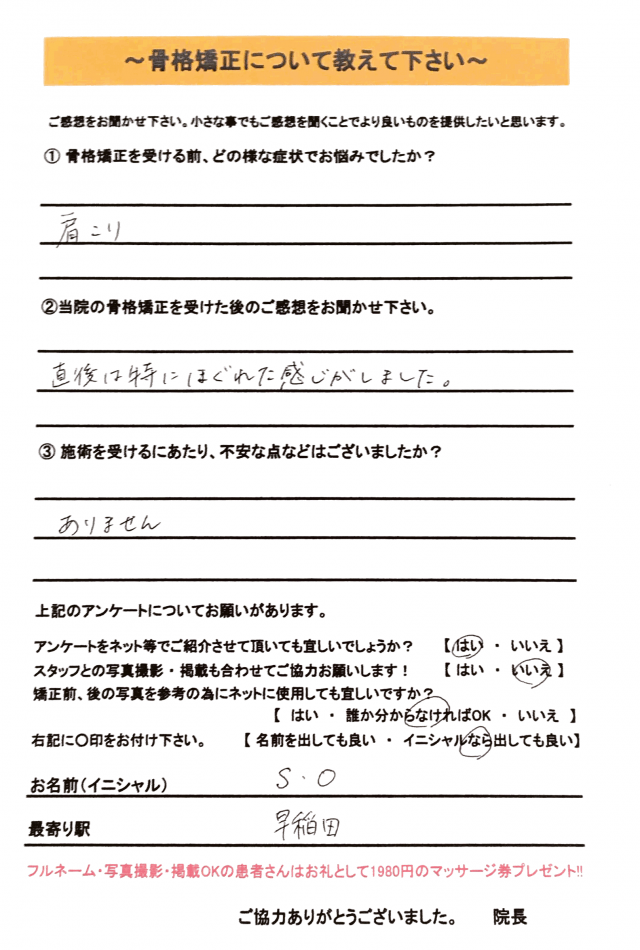 ～骨格矯正について教えて下さい～
ご感想をお聞かせ下さい。小さな事でもご感想を聞くことでより良いものを提供したいと思います。
① 骨格矯正を受ける前、どの様な症状でお悩みでしたか？
肩こり
②当院の骨格矯正を受けた後のご感想をお聞かせ下さい。
直後は特にほぐれた感じがしました。
③ 施術を受けるにあたり、不安な点などはございましたか？
ありません
上記のアンケートについてお願いがあります。
アンケートをネット等でご紹介させて頂いても宜しいでしょうか？ 【 はい ・ いいえ 】
スタッフとの写真撮影・掲載も合わせてご協力お願いします！ 【 はい ・ いいえ 】
矯正前、後の写真を参考の為にネットに使用しても宜しいですか？
【 はい ・ 誰か分からなければOK ・ いいえ 】
右記に〇印をお付け下さい。 【 名前を出しても良い ・ イニシャルなら出しても良い】
お名前（イニシャル） S.O
最寄り駅 早稲田
フルネーム・写真撮影・掲載OKの患者さんはお礼として1980円のマッサージ券プレゼント!!
ご協力ありがとうございました。 院長